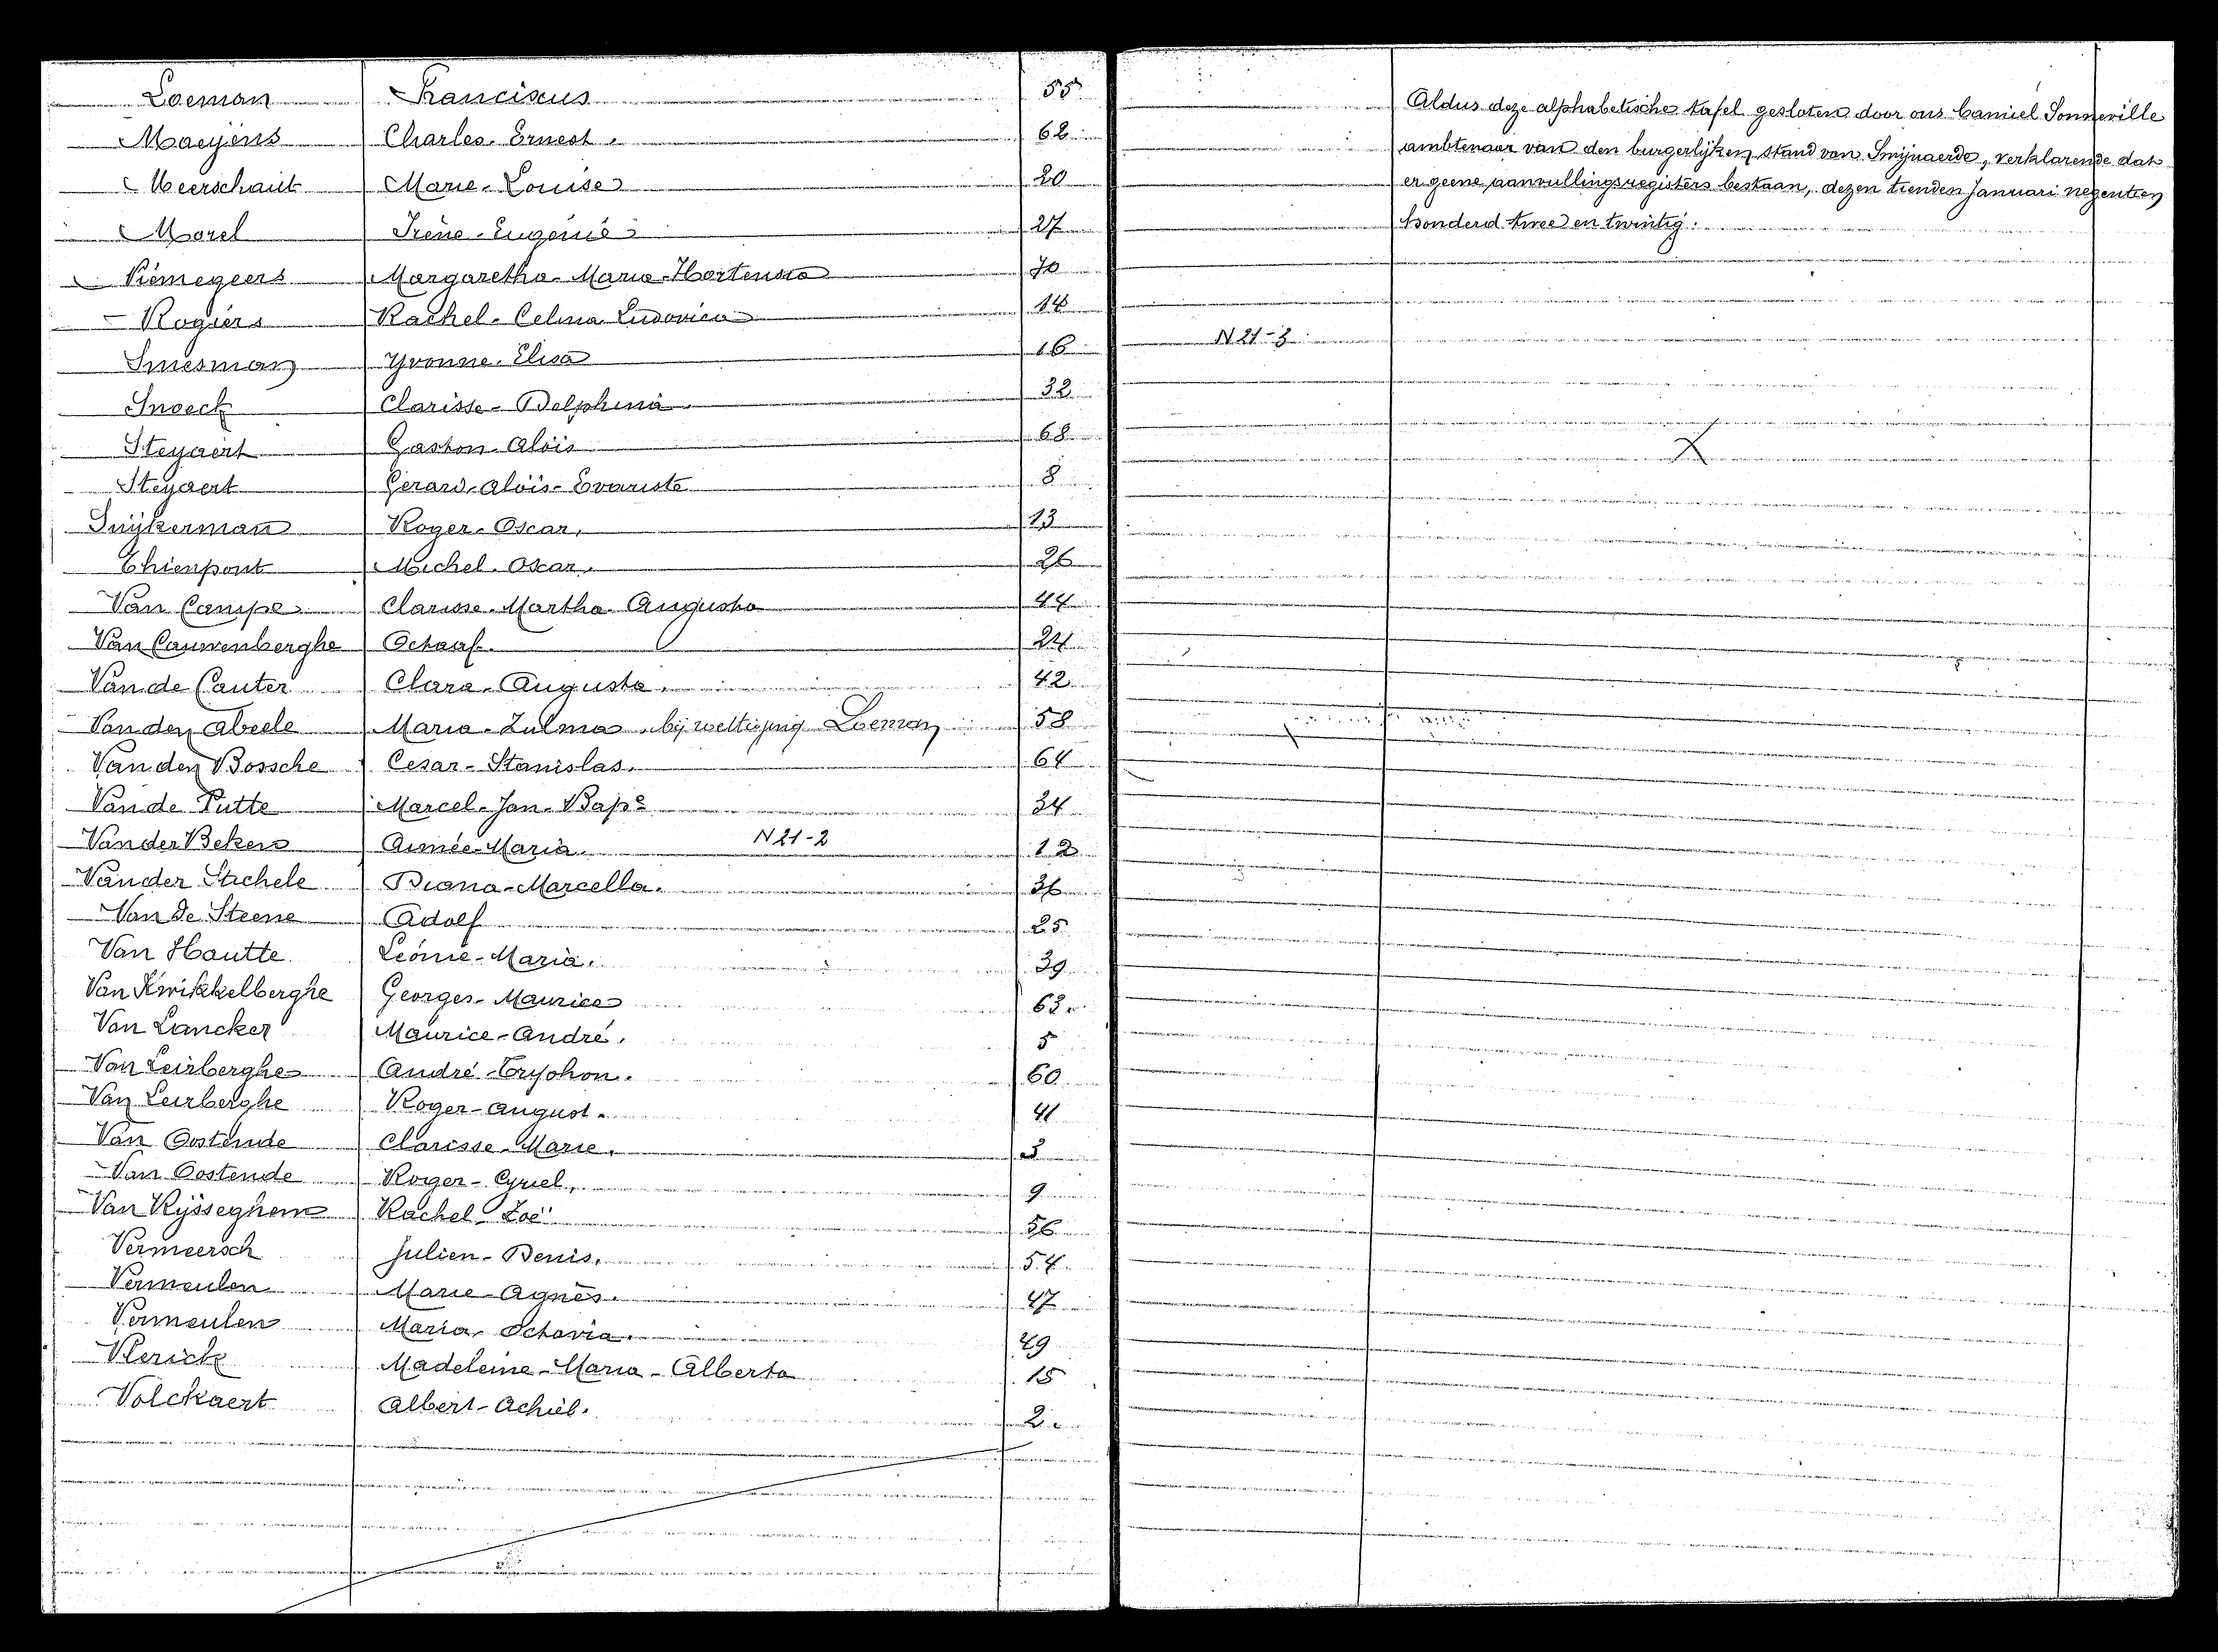 Loeman Franciscus 55
Maeyens Charles-Ernest. 62
Meerschaut Marie-Louise 20
Morel Irène-Eugénie 27
Piémegeers Margaretha-Maria-Hortensia 70
Rogiers Rachel-Celina Ludovica 14
Smesman Yvonne-Elisa 16
Snoeck Clarisse-Delphina. 32
Steyaert Gaston-Aloïs 68
Steyaert Gerard-Aloïs-Evariste 8
Suijkerman Roger-Oscar. 13
Thienpont Michel-Oscar. 26
Van Campe Clarisse-Martha-Augusta 44
Van Cauwenberghe Octaaf. 24
Van de Cauter Clara-Augusta. 42
Van den Abeele Maria-Zulma bij wettiging Loeman 58
Van den Bossche Cesar-Stanislas. 64
Van de Putte Marcel-Jan-Bapᵉ 34
Van der Beken Aimée-Maria. N 21-2 12
Van der Stichele Diana-Marcella. 36
Van de Steene Adolf 25
Van Hautte Léonie-Maria. 39
Van Kwikkelberghe Georges-Maurice 63.
Van Lancker Maurice-André. 5
Van Leirberghe André-Tryphon. 60
Van Leirberghe Roger-August. 41
Van Oostende Clarisse-Marie. 3
Van Oostende Roger-Cyriel. 9
Van Rijsseghem Rachel-Zoë 56
Vermeersch Julien-Denis. 54
Vermeulen Marie-Agnès. 47
Vermeulen Maria-Octavia. 49
Vlerick Madeleine-Maria-Alberta 15
Volckaert Albert-Achiel. 2.
Aldus deze alphabetische tafel gesloten door ons Camiel Sonneville
ambtenaar van den burgerlijken stand van Smijnaerde, verklarende dat
er geene aanvullingsregisters bestaan, dezen tienden Januari negentien
honderd twee en twintig.
N 21-3